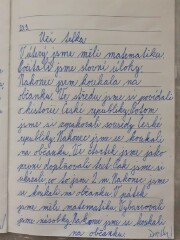 Učí selka
V úterý jsme měli matematiku
počítali jsme slovní úlohy.
Nakonec jsem koukala na
občanku. Ve středu jsme si povídali
o historii České republiky. Potom
jsme se opakovali české
republiky. Nakonec jsme se koukali
na občanku. Ve čtvrtek jsme jako
první doplňovali test. Pak jsme si
ukázali co to jsou 2 m. Nakonec jsme
se koukali na občanku. V pátek
jsme měli matematiku. Vybarvovali
jsme násobky. Nakonec jsme se koukali
na občanku